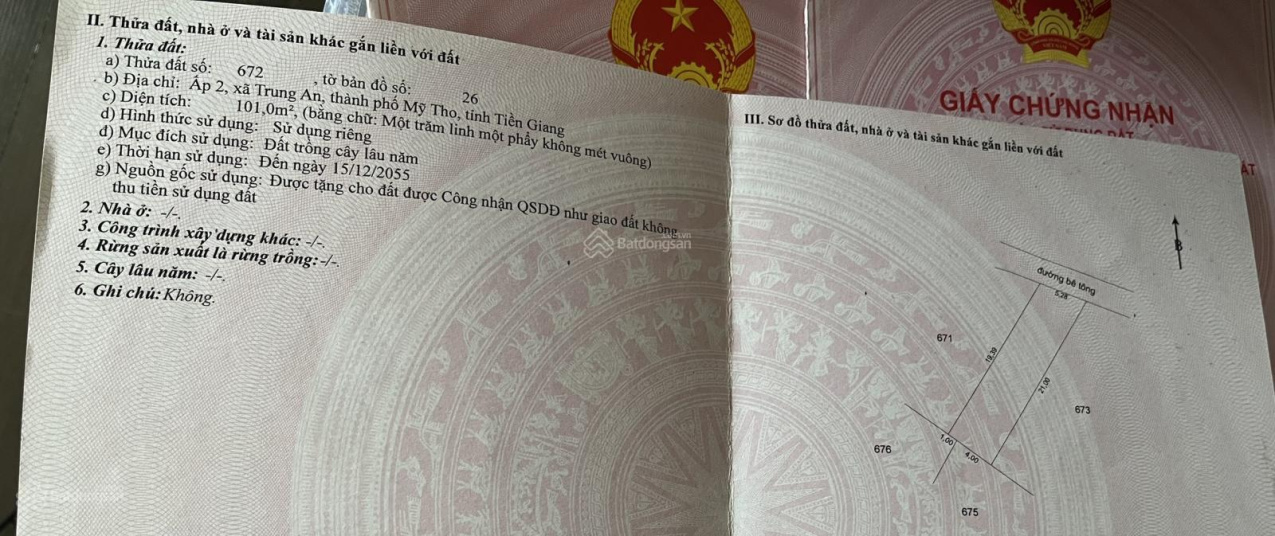 II. Thửa đất, nhà ở và tài sản khác gắn liền với đất
1. Thửa đất:
a) Thửa đất số: 672 , tờ bản đồ số: 26
b) Địa chỉ: Ấp 2, xã Trung An, thành phố Mỹ Tho, tỉnh Tiền Giang
c) Diện tích: 101,0m², (bằng chữ: Một trăm linh một phẩy không mét vuông)
d) Hình thức sử dụng: Sử dụng riêng
đ) Mục đích sử dụng: Đất trồng cây lâu năm
e) Thời hạn sử dụng: Đến ngày 15/12/2055
g) Nguồn gốc sử dụng: Được tặng cho đất được Công nhận QSDĐ như giao đất không
thu tiền sử dụng đất
2. Nhà ở: -/-.
3. Công trình xây dựng khác: -/-.
4. Rừng sản xuất là rừng trồng: -/-.
5. Cây lâu năm: -/-.
6. Ghi chú: Không.
Batdongsan
GIẤY CHỨNG NHẬN
III. Sơ đồ thửa đất, nhà ở và tài sản khác gắn liền với đất
B
đường bê tông
5,28
671
19,39
21,00
673
676
1,00
4,00
675